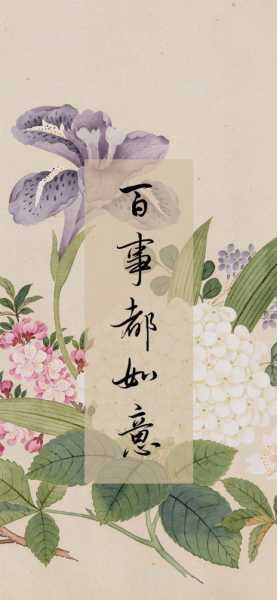 百事都如意